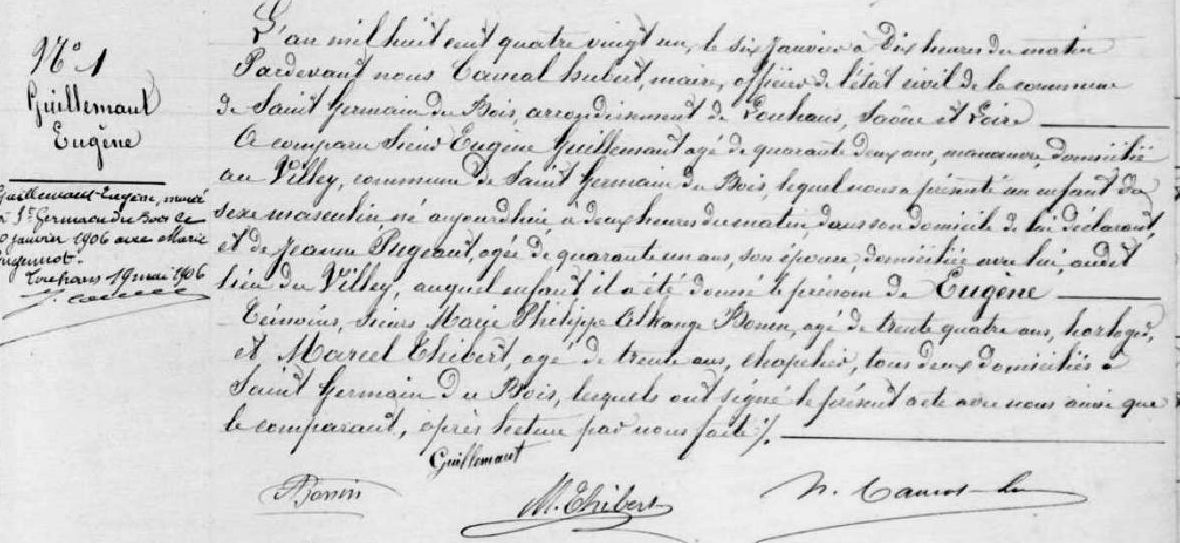 N° 1
Guillemaut
Eugène
Guillemaut Eugène, marié
à St Germain du Bois le
janvier 1906 avec Marie
Louhans 19 mai 1906
L'an mil huit cent quatre vingt un, le six janvier à dix heures du matin
Pardevant nous hubert, maire, officier de l'état civil de la commune
de Saint Germain du Bois, arrondissement de Louhans, Saône et Loire
A comparu Sieur Eugène Guillemaut agé de quarante deux ans, manœuvre, domicilié
au Villey, commune de Saint Germain du Bois, lequel nous a présenté un enfant du
sexe masculin né aujourd'hui à deux heures du matin, dans son domicile de lui déclarant,
et de Jeanne agée de quarante un ans, son épouse, domiciliée avec lui, audit
lieu du Villey, auquel enfant il a été donné le prénom de Eugène
Témoins, Sieurs Marie Philippe Bonin, agé de trente quatre ans, horloger,
et Marcel Thibert, agé de trente ans, chapelier, tous deux domiciliés à
Saint Germain du Bois, lesquels ont signé le présent acte avec nous ainsi que
le comparant, après lecture par nous faite ./.
Guillemaut
Bonin
M. Thibert